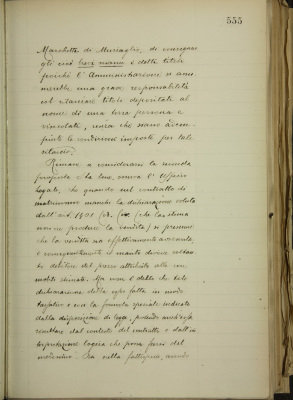 555
Marchetta di Mursaglio, di consegnare
gli così brevi manu i detti titoli
poichè l'Amministrazione si assu-
merebbe una grave responsabilità
col rilasciare titoli depositati al
nome di una terza persona e
vincolati, senza che siano adem-
piute le condizioni imposte per tale
rilascio?
Rimane a considerarsi la seconda
proposta e la base, ovvero l'Ufficio
legale, che quando nel contratto di
matrimonio manchi la dichiarazione voluta
dall'art. 1401 (che la stima
non ne produce la vendita) si presume
che la vendita sia effettivamente avvenuta,
e conseguentemente il marito diviene
debitore del prezzo attribuito alla cosa
mobile stimata. Ma non è detto che tale
dichiarazione debba esser fatta in modo
tassativo e con la formula speciale indicata
dalla disposizione di legge, potendo anche
risultare dal contesto del contratto e dall'in-
terpretazione logica che possa farsi del
medesimo. Ora nella fattispecie, avendo